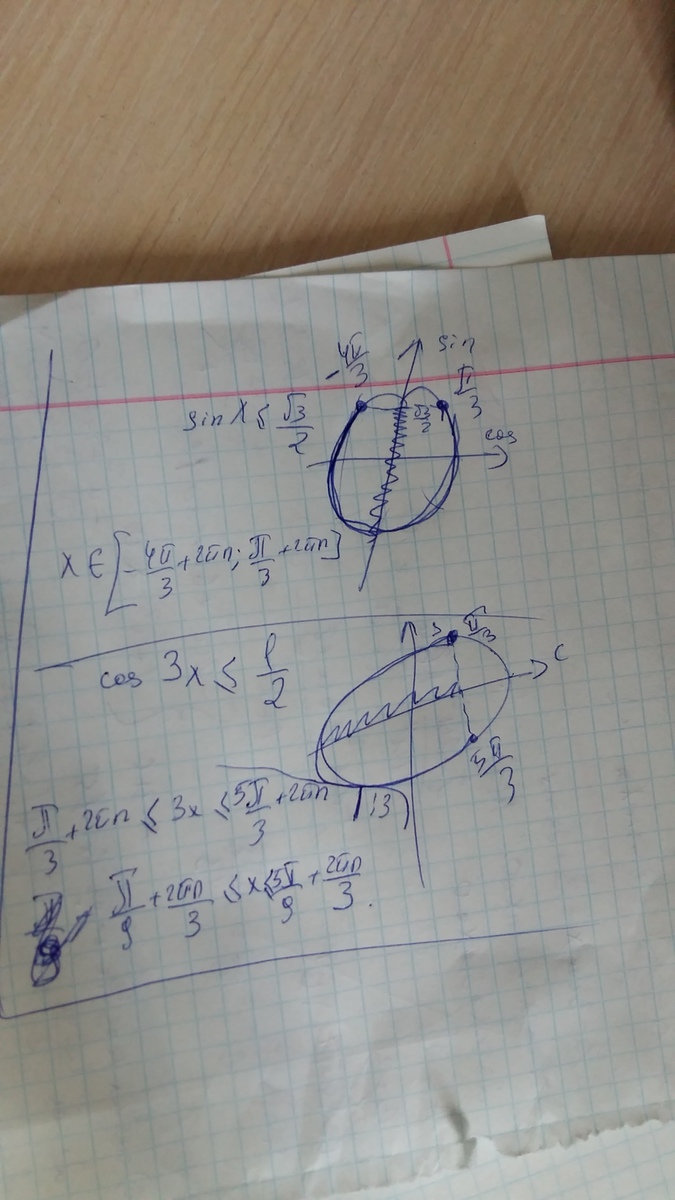 sin
-4π/3
π/3
sin x ≤ √3/2
√3/2
cos
x ∈ [-4π/3 + 2πn; π/3 + 2πn]
cos 3x ≤ 1/2
s
π/3
c
5π/3
π/3 + 2πn ≤ 3x ≤ 5π/3 + 2πn
|:3
π/9 + 2πn/3 ≤ x ≤ 5π/9 + 2πn/3.